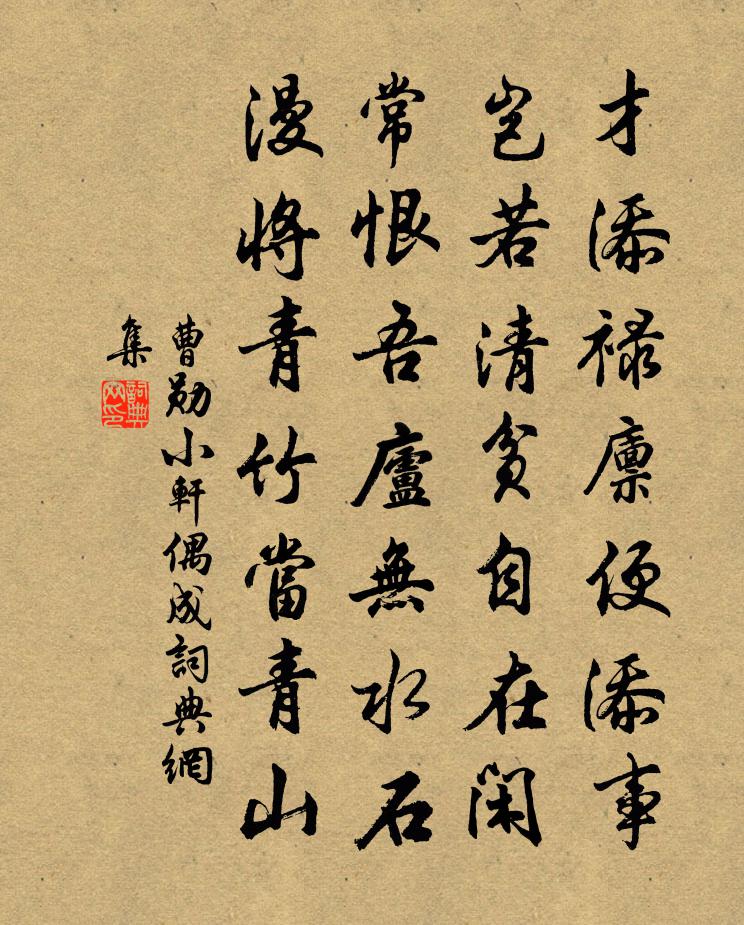 才添祿廩便添事
豈若清貧自在閑
常恨吾廬無水石
漫將青竹當青山
曹勛小軒偶成詞典網
集
詞典
网印